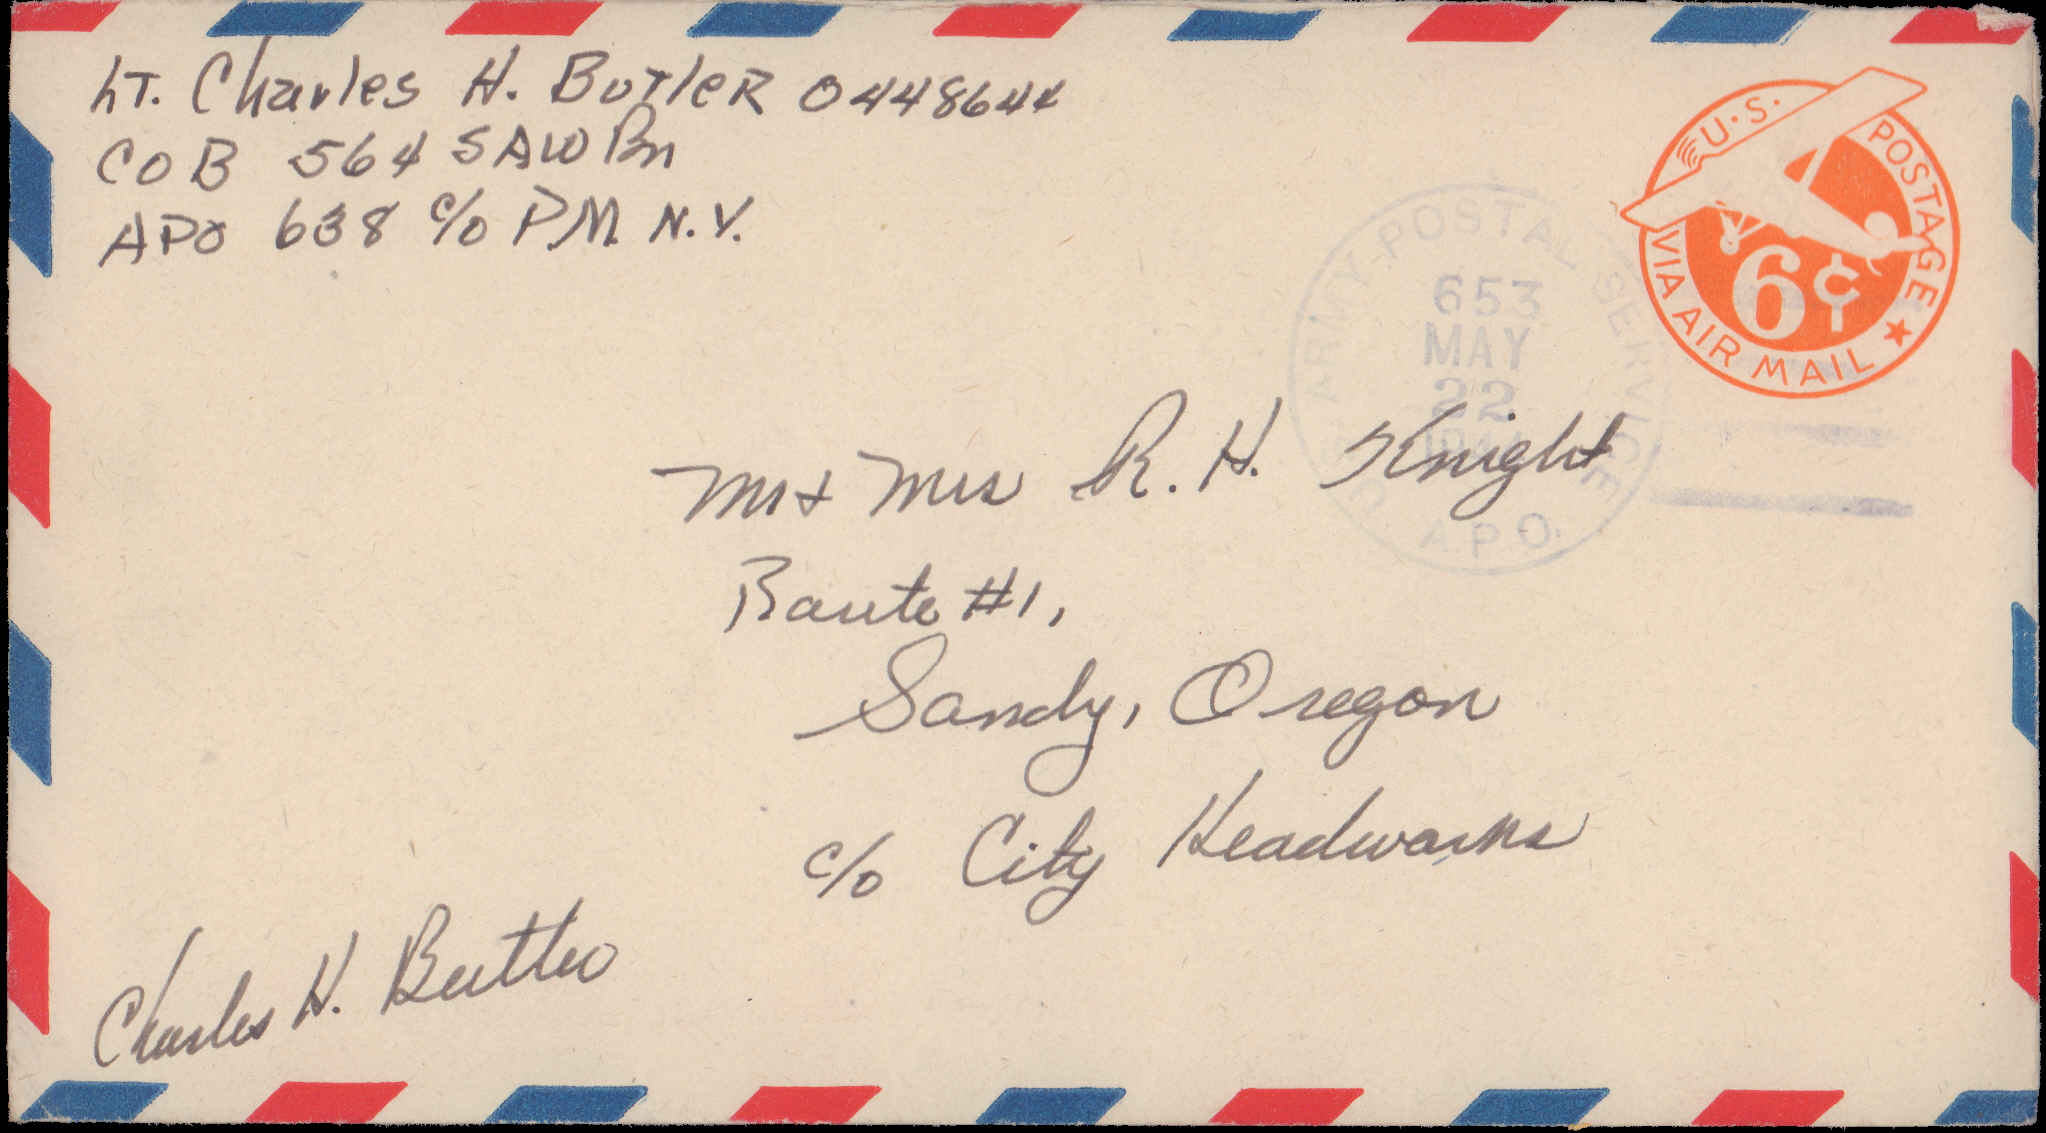 Lt. Charles H. Butler O448644
CO B 564 SAW Bn
APO 638 c/o P.M. N.Y.
U.S. POSTAGE
VIA AIR MAIL
6¢
ARMY POSTAL SERVICE
653
MAY
22
A.P.O.
Mr & Mrs R. H. Knight
Route #1,
Sandy, Oregon
c/o City Headworks
Charles H. Butler